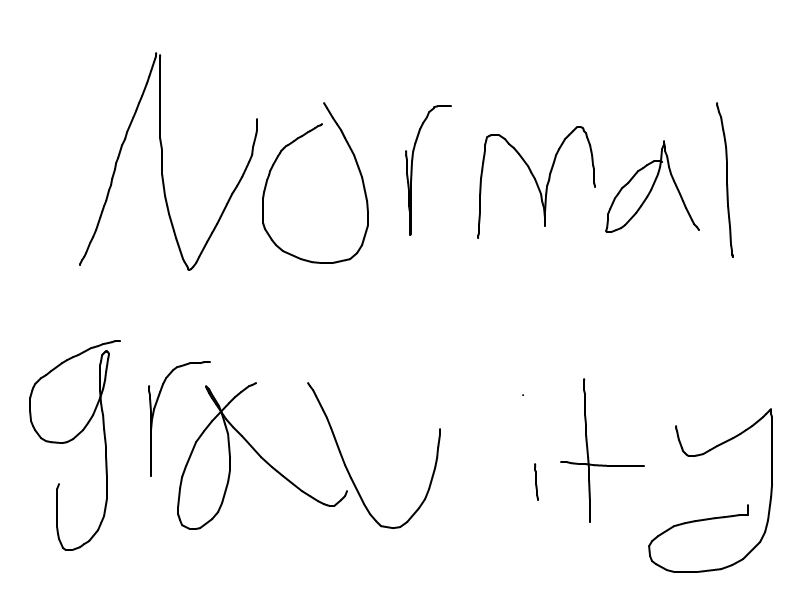 Normal
gravity